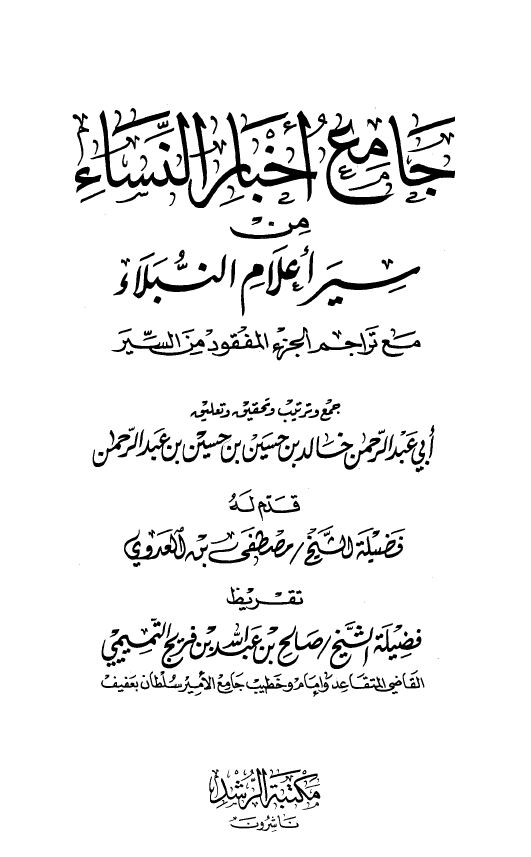 جَامِع أخْبَارِ النِّسَاءِ
مِنْ
سِيَر أعْلَامِ النُّبَلَاءُ
مَع تَرَاجِم الجزء المفقود مِنَ السِّيَر
جمع وترتيب وتحقيق وتعليق
أبي عَبْد الرَّحمٰن خَالد بن حسَين بن حسين بن عبد الرَّحمٰن
قدّم لهُ
فَضيلَة الشَّيخ / مصطفى بن العدوي
تقريظ
فَضيلَة الشَّيخ / صَالح بن عَبد الله بن فريج التَّميمي
القاضي المتقاعد وَإمَام وخطيب جَامع الأمير سُلطان بعفيف
مكتبة الرُّشد
ناشرون